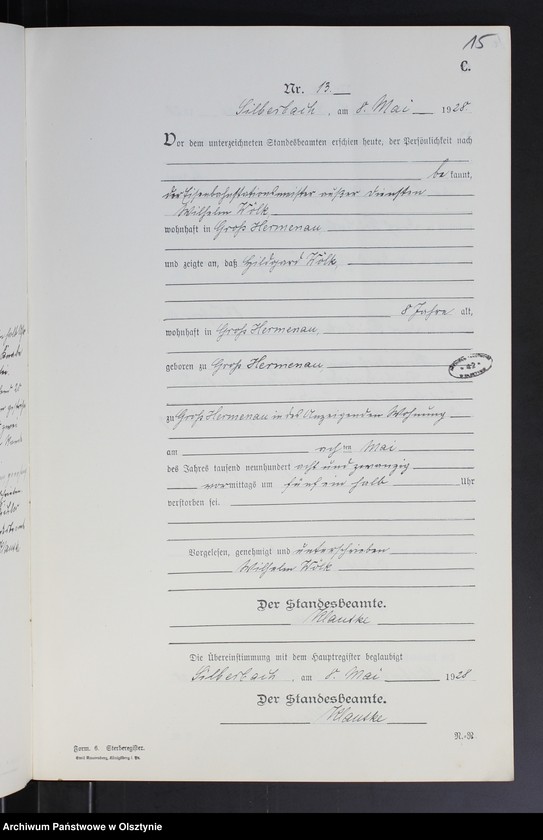 15
C.
Nr. 13.
Silberbach, am 8. Mai 1928
Vor dem unterzeichneten Standesbeamten erschien heute, der Persönlichkeit nach
be kannt,
der Eisenbahnstationsmeister außer Diensten
Wilhelm Wölk
wohnhaft in Groß Hermenau
und zeigte an, daß Hildgard Wölk,
8 Jahre alt,
wohnhaft in Groß Hermenau,
geboren zu Groß Hermenau
zu Groß Hermenau in des Anzeigenden Wohnung
am achten Mai
des Jahres tausend neunhundert acht und zwanzig
vormittags um fünf ein halb Uhr
verstorben sei.
Vorgelesen, genehmigt und unterschrieben
Wilhelm Wölk
Der Standesbeamte.
Klauske
Die Übereinstimmung mit dem Hauptregister beglaubigt
Silberbach, am 8. Mai 1928
Der Standesbeamte.
Klauske
Form. C. Sterberegister.
R.-R.
Archiwum Państwowe w Olsztynie